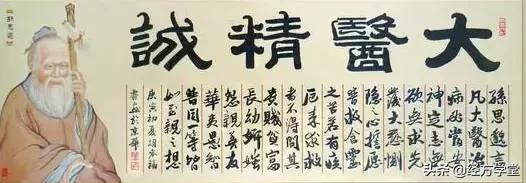 大醫精誠
孫思邈言
凡大醫治
病必當安
神定志無
欲無求先
發大慈惻
隱心誓願
普救含靈
之苦若有疾
厄來求救
者不得問其
貴賤貧富
長幼妍媸
怨親善友
華夷愚智
普同等皆
如至親之想
庚寅初夏胡
書於京華
孫思邈
头条 @经方学堂